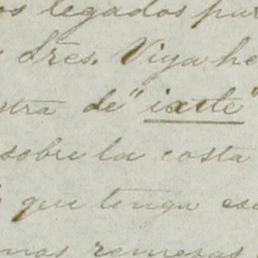 os legados par
dres. Viya he
stra de "ixtle"
sobre la costa
que tenga es
mas remesas